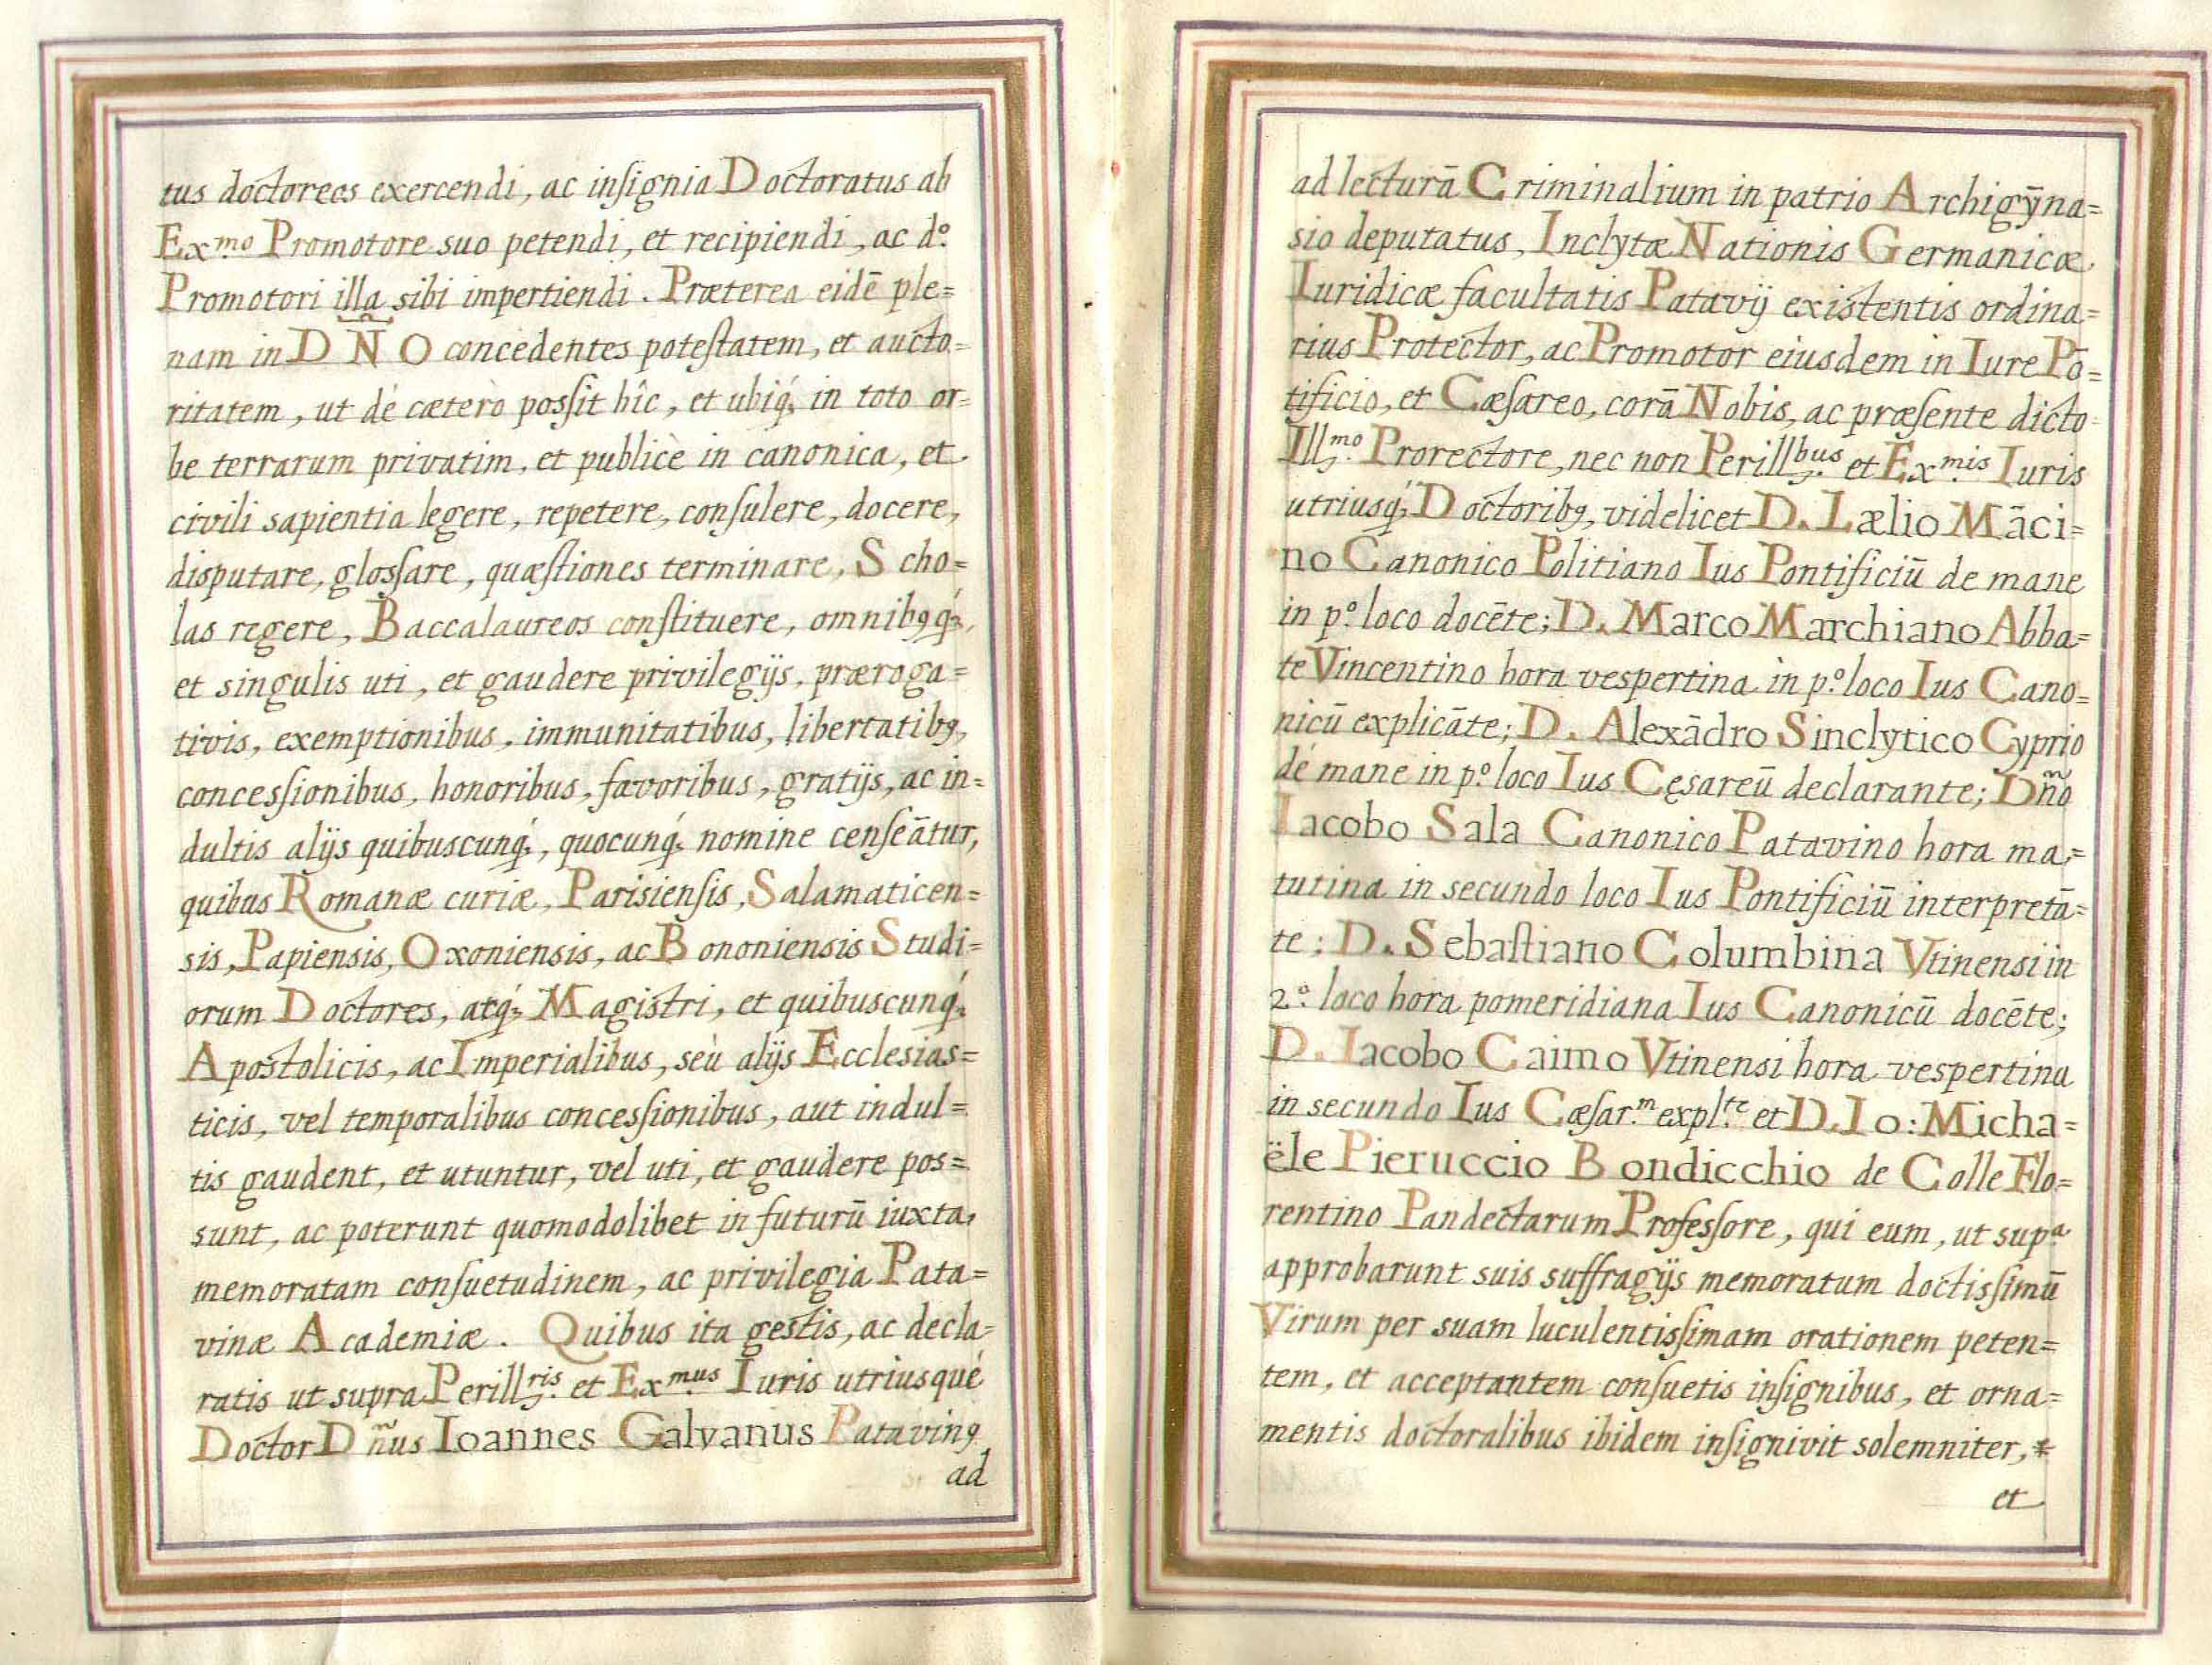 tus doctoreos exercendi, ac insignia Doctoratus ab
Exmo. Promotore suo petendi, et recipiendi, ac do.
Promotori illa sibi impertiendi. Præterea eidē ple=
nam in DÑO concedentes potestatem, et aucto=
ritatem, ut dé cæterò possit hîc, et ubiq́; in toto or=
be terrarum privatim, et publicè in canonica, et
civili sapientia legere, repetere, consulere, docere,
disputare, glossare, quæstiones terminare, Scho=
las regere, Baccalaureos constituere, omnibꝯq́;
et singulis uti, et gaudere privilegijs, præroga=
tivis, exemptionibus, immunitatibus, libertatibꝯ,
concessionibus, honoribus, favoribus, gratijs, ac in=
dultis alijs quibuscunq́;, quocunq́; nomine censeātur,
quibus Romanæ curiæ, Parisiensis, Salamaticen=
sis, Papiensis, Oxoniensis, ac Bononiensis Studi=
orum Doctores, atq́; Magistri, et quibuscunq́;
Apostolicis, ac Imperialibus, seù alijs Ecclesias=
ticis, vel temporalibus concessionibus, aut indul=
tis gaudent, et utuntur, vel uti, et gaudere pos=
sunt, ac poterunt quomodolibet in futurū iuxta,
memoratam consuetudinem, ac privilegia Pata=
vinæ Academiæ. Quibus ita gestis, ac decla=
ratis ut supra Perillris. et Exmus. Iuris utriusqué
Doctor Dñus Ioannes Galvanus Patavinꝯ
ad
ad lecturā Criminalium in patrio Archigȳna=
sio deputatus, Inclytæ Nationis Germanicæ
Iuridicæ facultatis Patavij existentis ordina=
rius Protector, ac Promotor eiusdem in Iure Pō=
tificio, et Cæsareo, corā Nobis, ac præsente dicto
Illmo. Prorectore, nec non Perillbus. et Exmis. Iuris
utriusq́; Doctoribꝯ, videlicet D. Lælio Māci=
no Canonico Politiano Ius Pontificiū de mane
in po. loco docēte; D. Marco Marchiano Abba=
te Vincentino hora vespertina in po. loco Ius Cano=
nicū explicāte; D. Alexādro Sinclytico Cyprio
dé mane in po. loco Ius Cęsareū declarante; Dño
Iacobo Sala Canonico Patavino hora ma,=
tutina in secundo loco Ius Pontificiū interpretā=
te; D. Sebastiano Columbina Vtinensi in
2o. loco hora pomeridiana Ius Canonicū docēte;
D. Iacobo Caimo Vtinensi hora vespertina
in secundo Ius Cæsar.m expl.te et D. Io: Micha=
ële Pieruccio Bondicchio de Colle Flo=
rentino Pandectarum Professore, qui eum, ut supa.
approbarunt suis suffragijs memoratum doctissimū
Virum per suam luculentissimam orationem peten=
tem, et acceptantem consuetis insignibus, et orna=
mentis doctoralibus ibidem insignivit solemniter, *
et